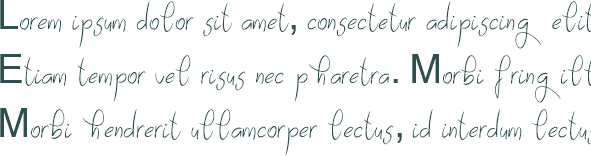 Lorem ipsum dolor sit amet, consectetur adipiscing elit
Etiam tempor vel risus nec pharetra. Morbi fring ill
Morbi hendrerit ullamcorper lectus, id interdum lectus